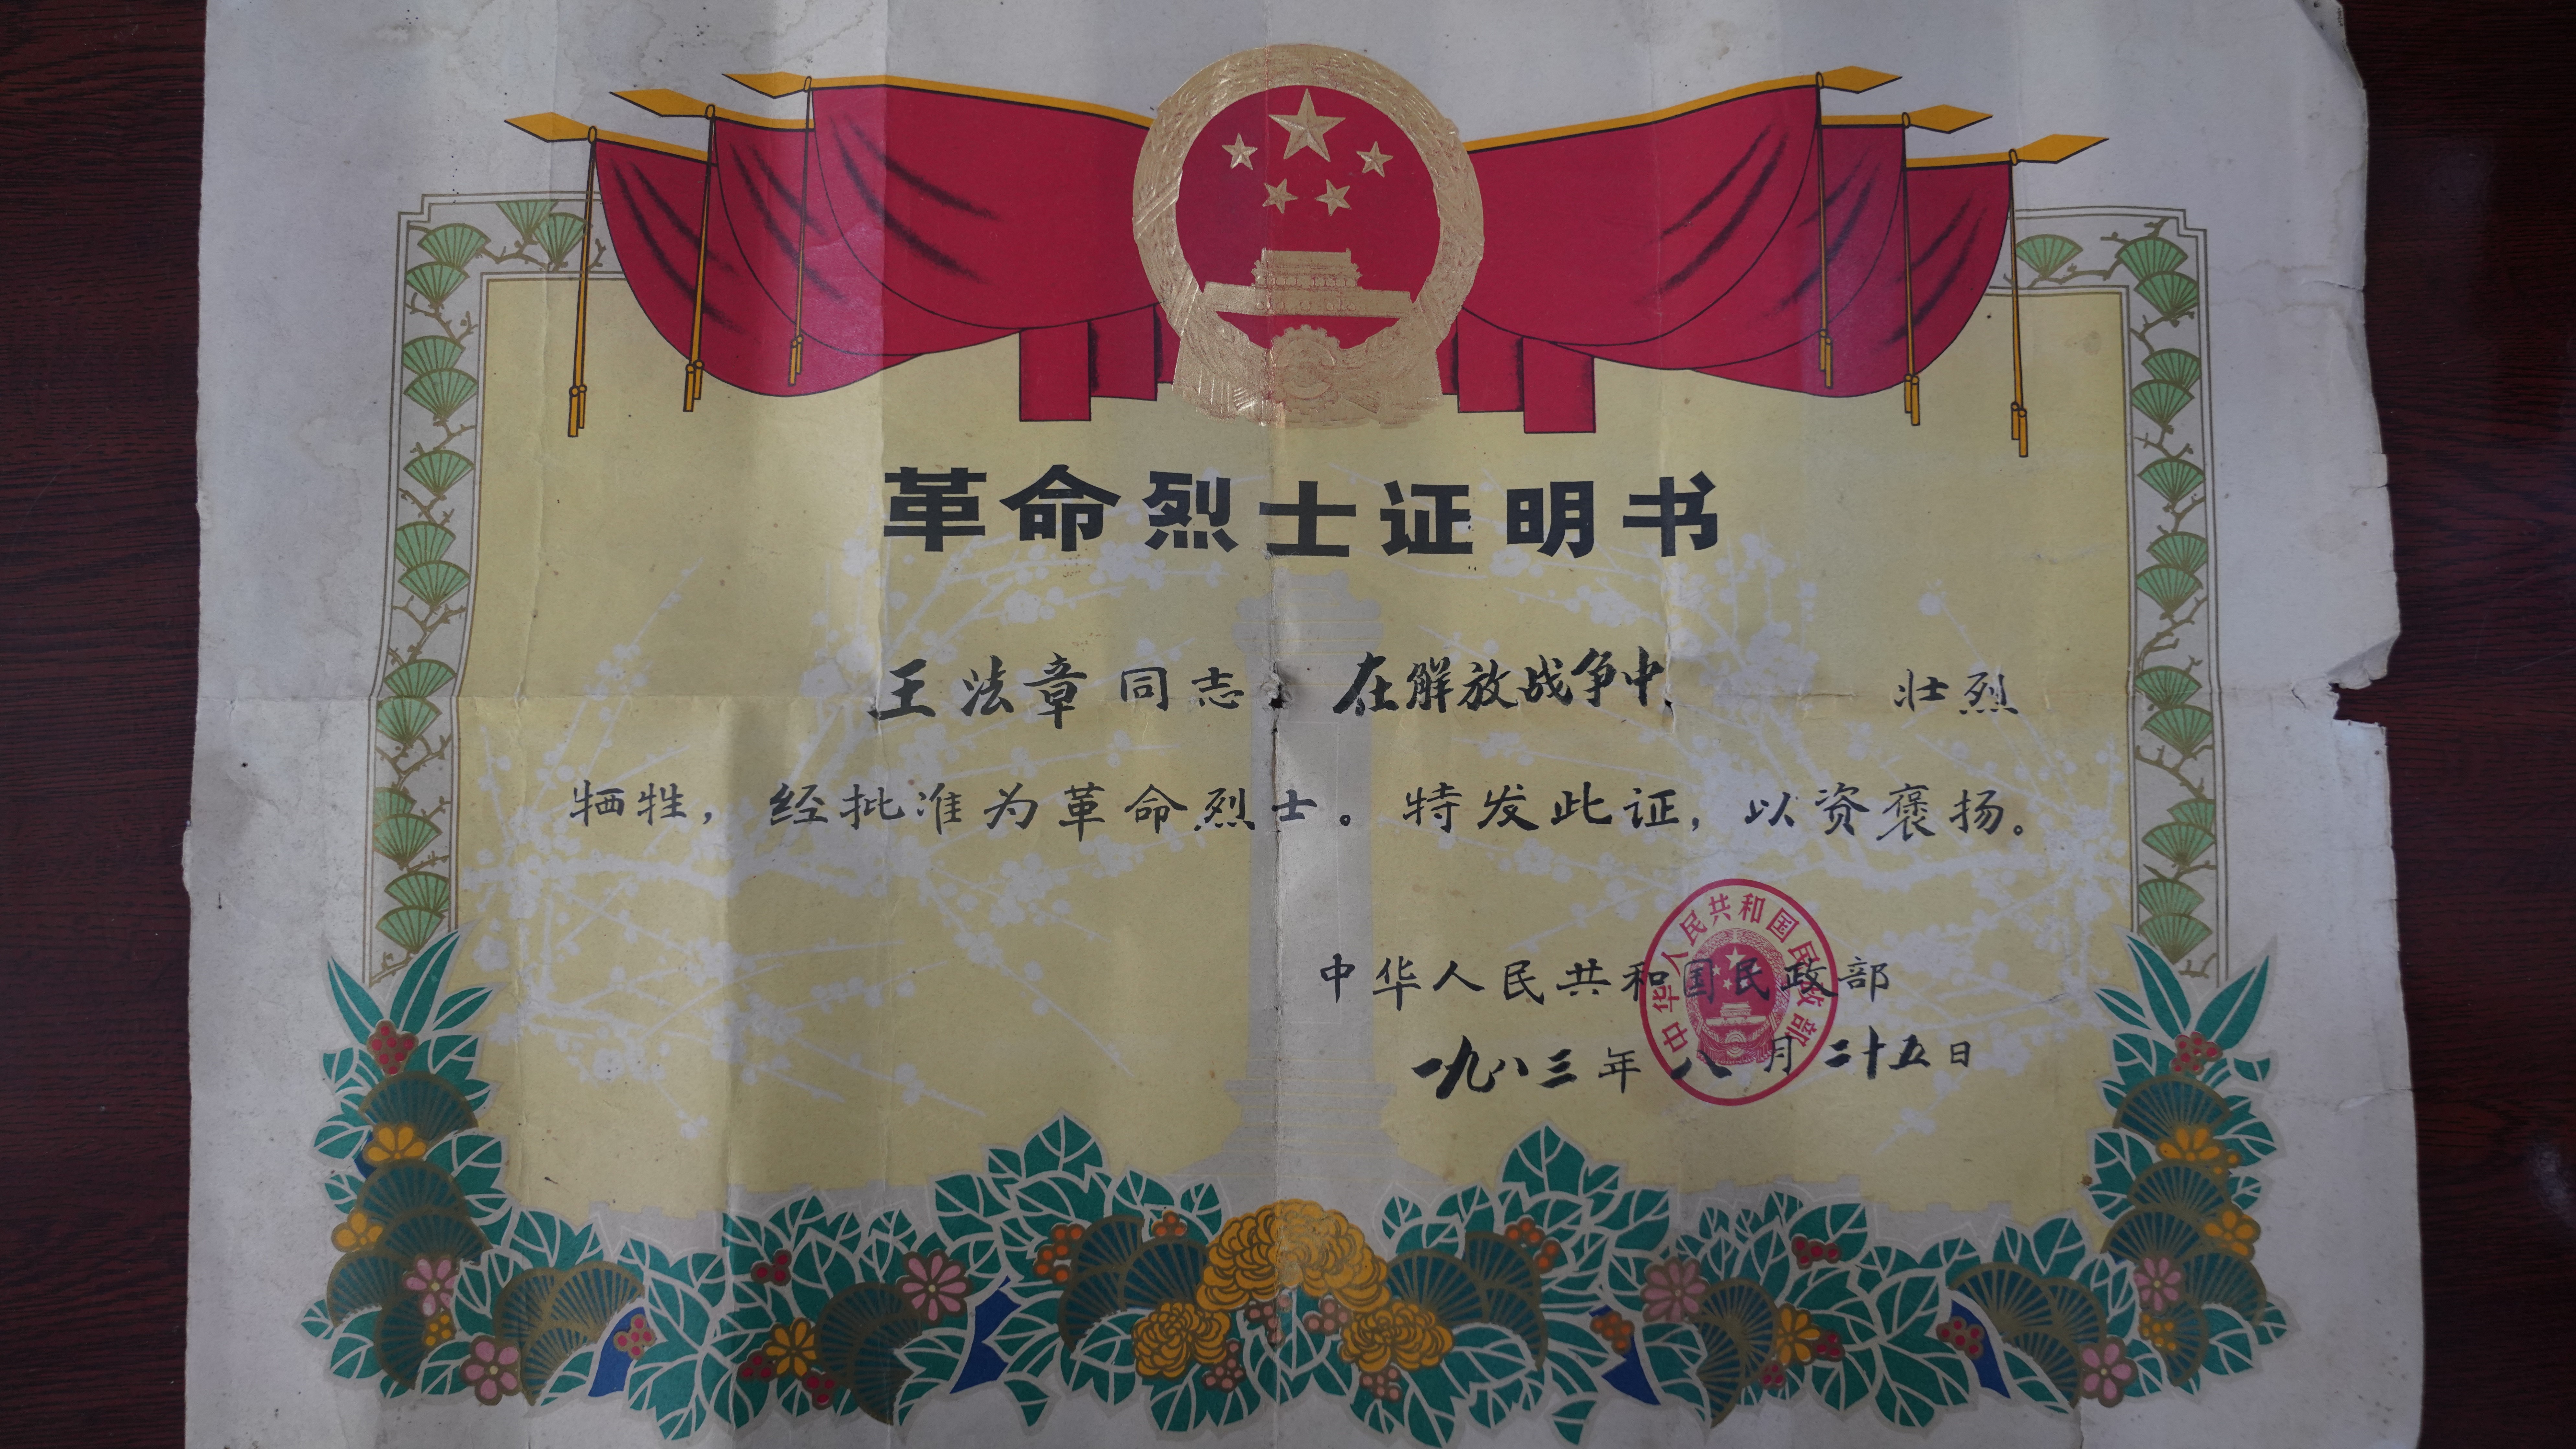 革命烈士证明书
王法章同志 在解放战争中 壮烈
牺牲，经批准为革命烈士。特发此证，以资褒扬。
中华人民共和国民政部
一九八三年八月二十五日
中华人民共和国民政部